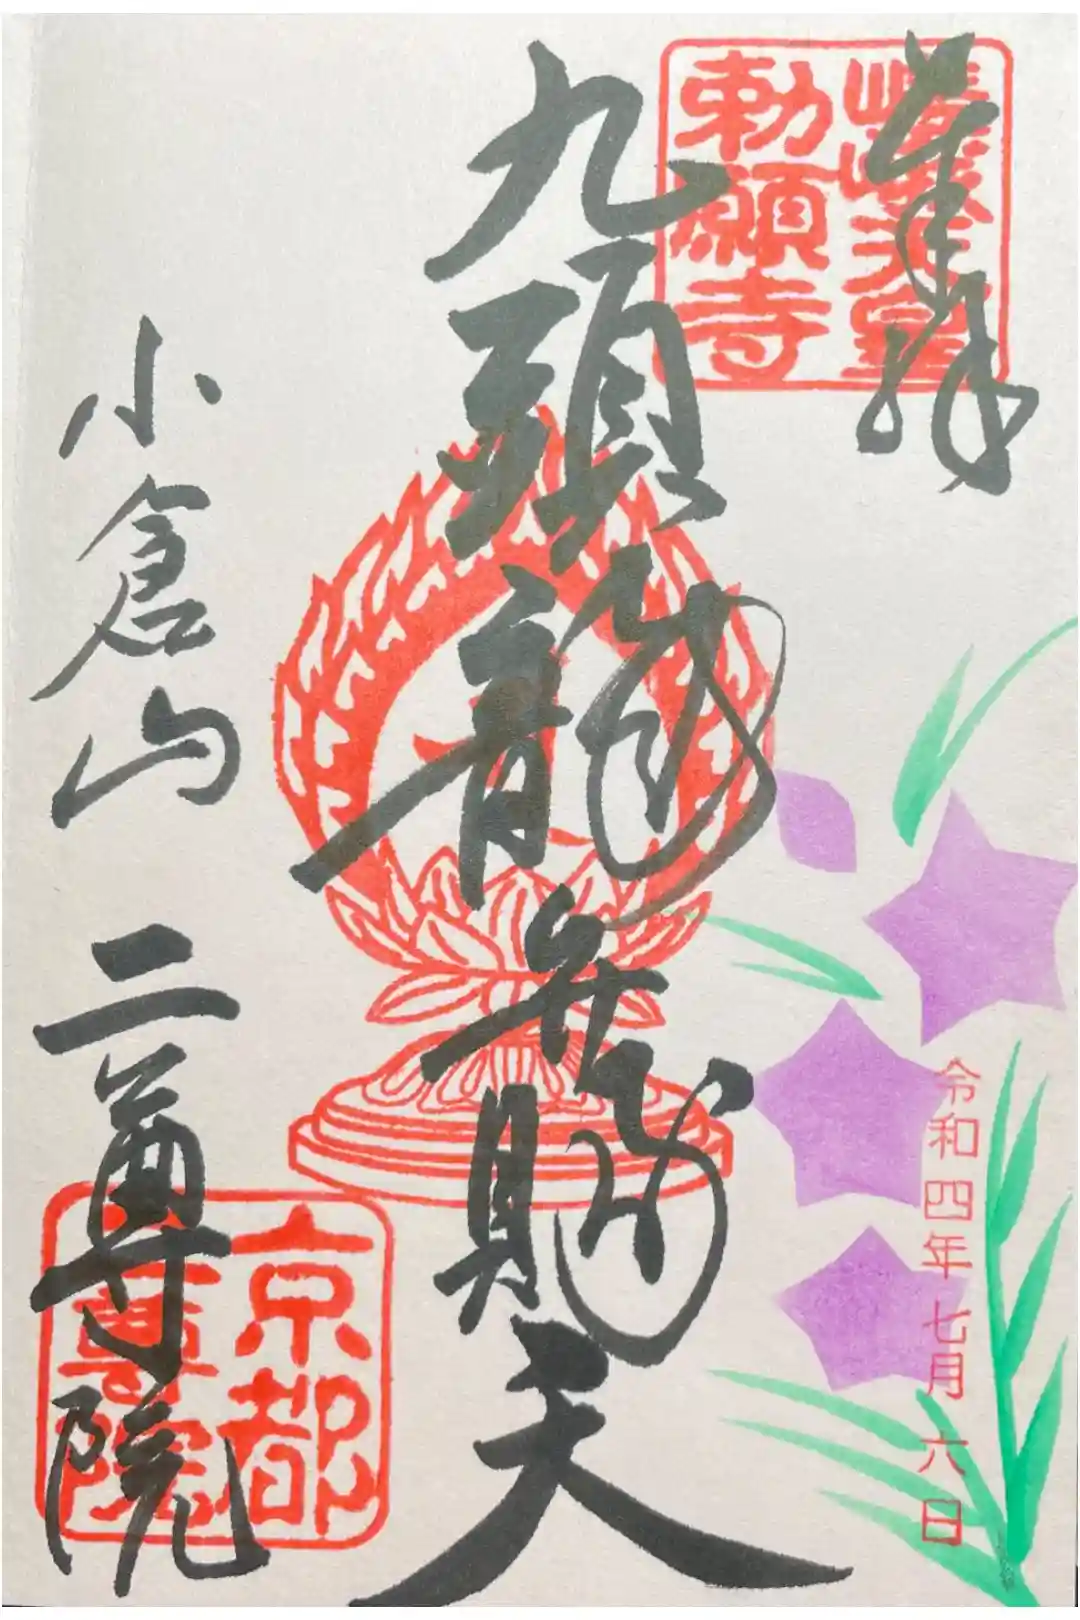 奉拝
嵯峨天皇
勅願寺
令和四年七月六日
九頭龍弁財天
小倉山
二尊院
京都
二尊院